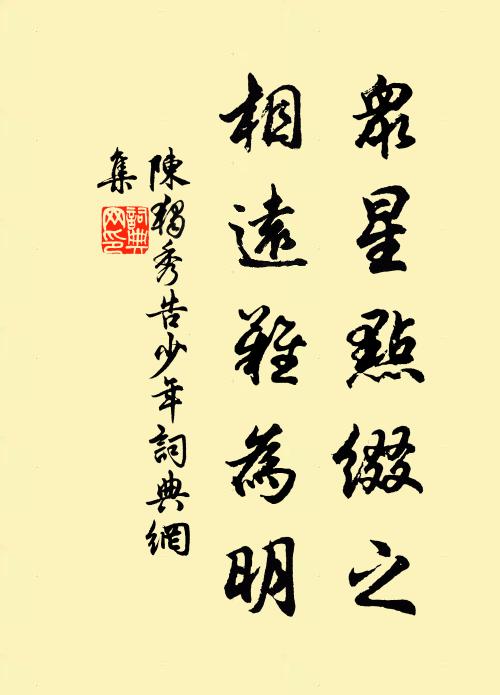 眾星點綴之
相遠難為明
陳獨秀告少年詞典網
集
詞典
网印